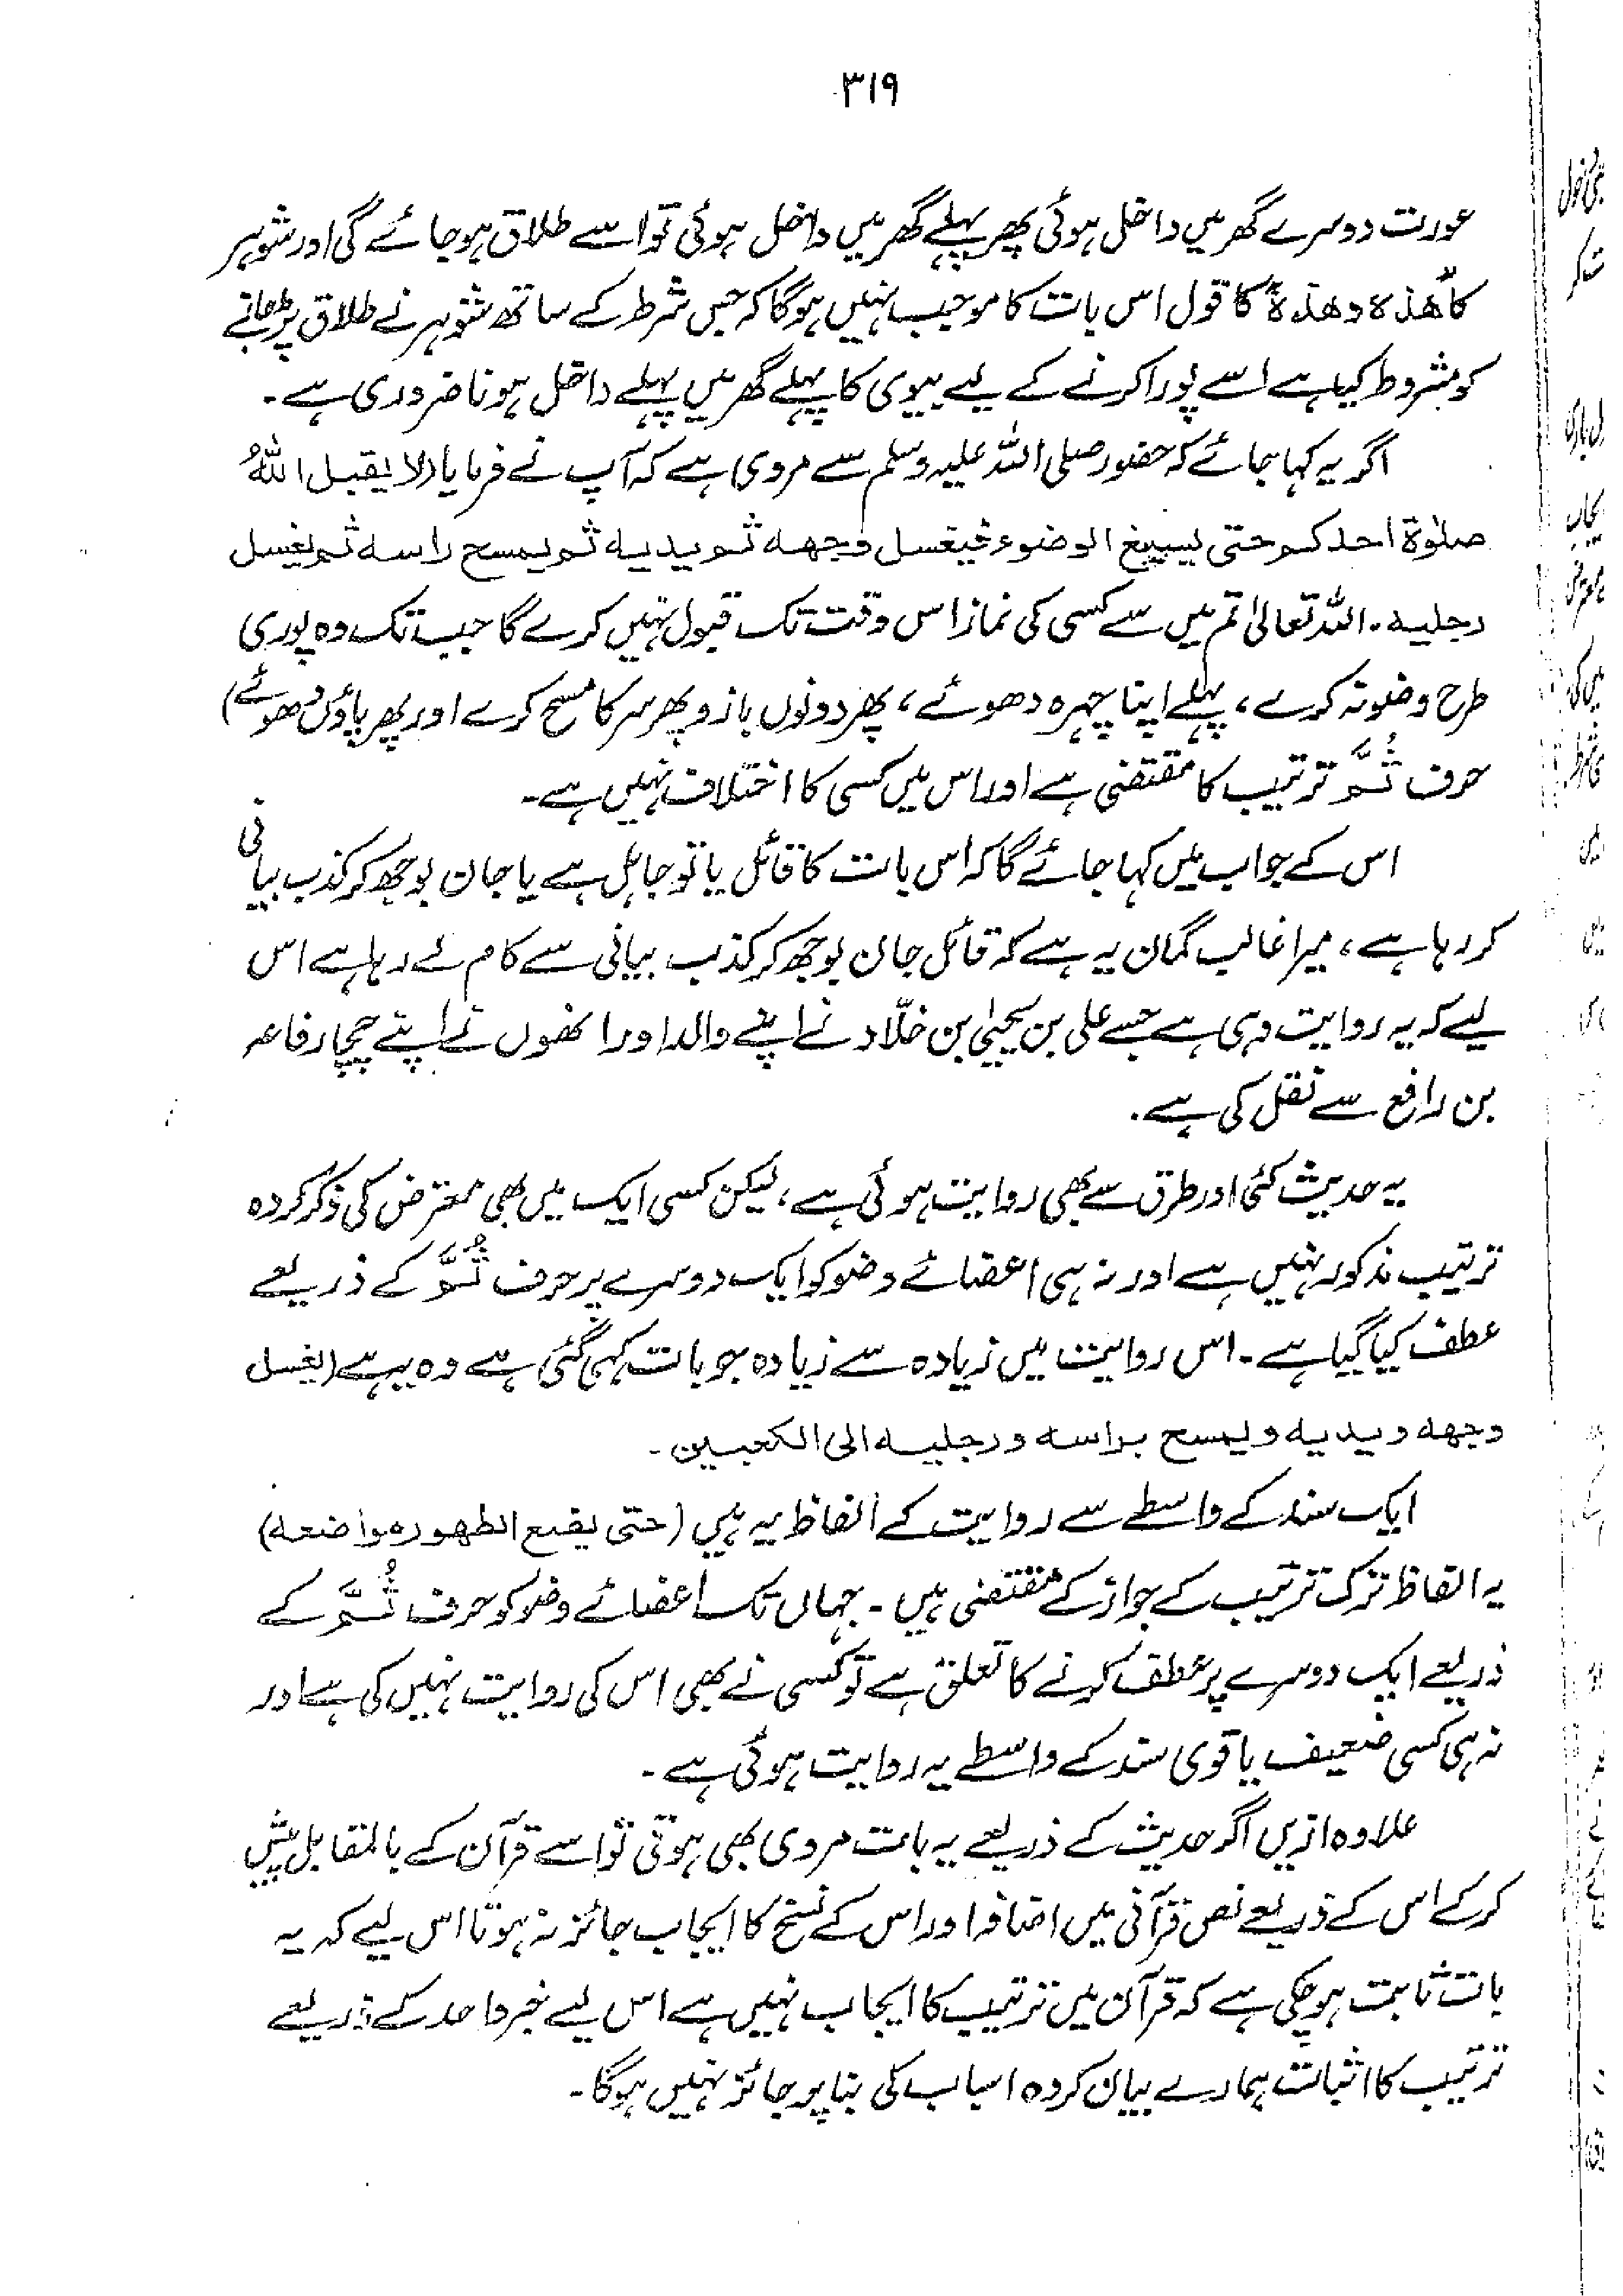 ۳۱۹
عورت دوسرے گھر میں داخل ہوئی پھر پہلے گھر میں داخل ہوئی تو اسے طلاق ہو جائے گی اور شوہر
کا "ھذہ وھذہ" کا قول اس بات کا موجب نہیں ہوگا کہ جس شرط کے ساتھ شوہر نے طلاق پڑجانے
کو مشروط کیا ہے اسے پورا کرنے کے لیے بیوی کا پہلے گھر میں پہلے داخل ہونا ضروری ہے۔
اگر یہ کہا جائے کہ حضور صلی اللہ علیہ وسلم سے مروی ہے کہ آپ نے فرمایا (لا یقبل اللہُ
صلوٰۃ احدکم حتی یسبغ الوضوء فیغسل وجھہ ثم یدیہ ثم یمسح راسہ ثم یغسل
رجلیہ۔ اللہ تعالیٰ تم میں سے کسی کی نماز اس وقت تک قبول نہیں کرے گا جب تک وہ پوری
طرح وضو نہ کرے، پہلے اپنا چہرہ دھوئے، پھر دونوں بازو پھر سر کا مسح کرے اور پھر پاؤں دھوئے)
حرف ثُمَّ ترتیب کا مقتضی ہے اور اس میں کسی کا اختلاف نہیں ہے۔
اس کے جواب میں کہا جائے گا کہ اس بات کا قائل یا تو جاہل ہے یا جان بوجھ کر کذب بیانی
کر رہا ہے، میرا غالب گمان یہ ہے کہ قائل جان بوجھ کر کذب بیانی سے کام لے رہا ہے اس
لیے کہ یہ روایت وہی ہے جسے علی بن یحییٰ بن خلّاد نے اپنے والد اور انھوں نے اپنے چچا رفاعہ
بن رافع سے نقل کی ہے۔
یہ حدیث کئی اور طرق سے بھی روایت ہوئی ہے، لیکن کسی ایک میں بھی معترض کی ذکر کردہ
ترتیب مذکور نہیں ہے اور نہ ہی اعضائے وضو کو ایک دوسرے پر حرف ثُمَّ کے ذریعے
عطف کیا گیا ہے۔ اس روایت میں زیادہ سے زیادہ جو بات کہی گئی ہے وہ یہ ہے (یغسل
وجھہ ویدیہ ویمسح براسہ ورجلیہ الی الکعبین۔
ایک سند کے واسطے سے روایت کے الفاظ یہ ہیں (حتی یضع الطھور مواضعہ)
یہ الفاظ ترک ترتیب کے جواز کے مقتضی ہیں۔ جہاں تک اعضائے وضو کو حرف ثُمَّ کے
ذریعے ایک دوسرے پر عطف کرنے کا تعلق ہے تو کسی نے بھی اس کی روایت نہیں کی ہے اور
نہ ہی کسی ضعیف یا قوی سند کے واسطے یہ روایت ہوئی ہے۔
علاوہ ازیں اگر حدیث کے ذریعے یہ بات مروی بھی ہوتی تو اسے قرآن کے بالمقابل پیش
کر کے اس کے ذریعے نص قرآنی میں اضافہ اور اس کے نسخ کا ایجاب جائز نہ ہوتا اس لیے کہ یہ
بات ثابت ہو چکی ہے کہ قرآن میں ترتیب کا ایجاب نہیں ہے اس لیے خبر واحد کے ذریعے
ترتیب کا اثبات ہمارے بیان کردہ اسباب کی بنا پر جائز نہیں ہوگا۔